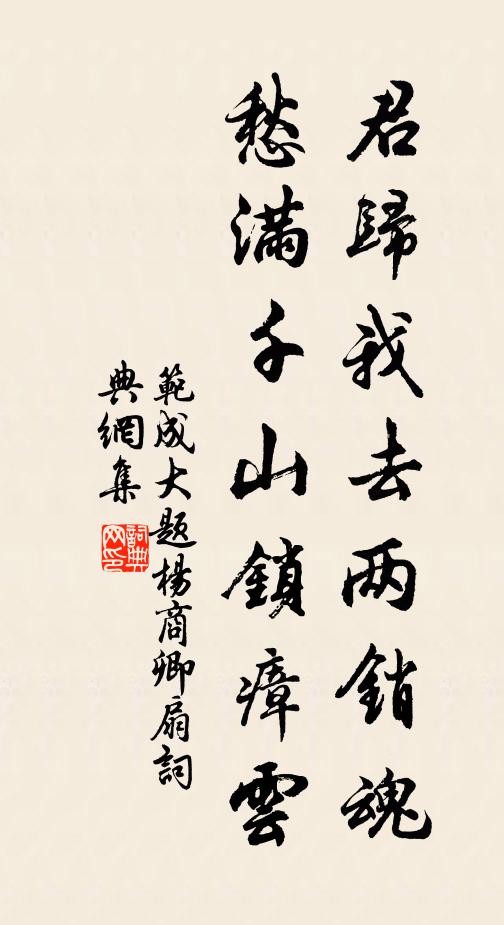 君歸我去两銷魂
愁滿千山鎖瘴雲
範成大题楊商卿扇詞
典網集
詞典
网印